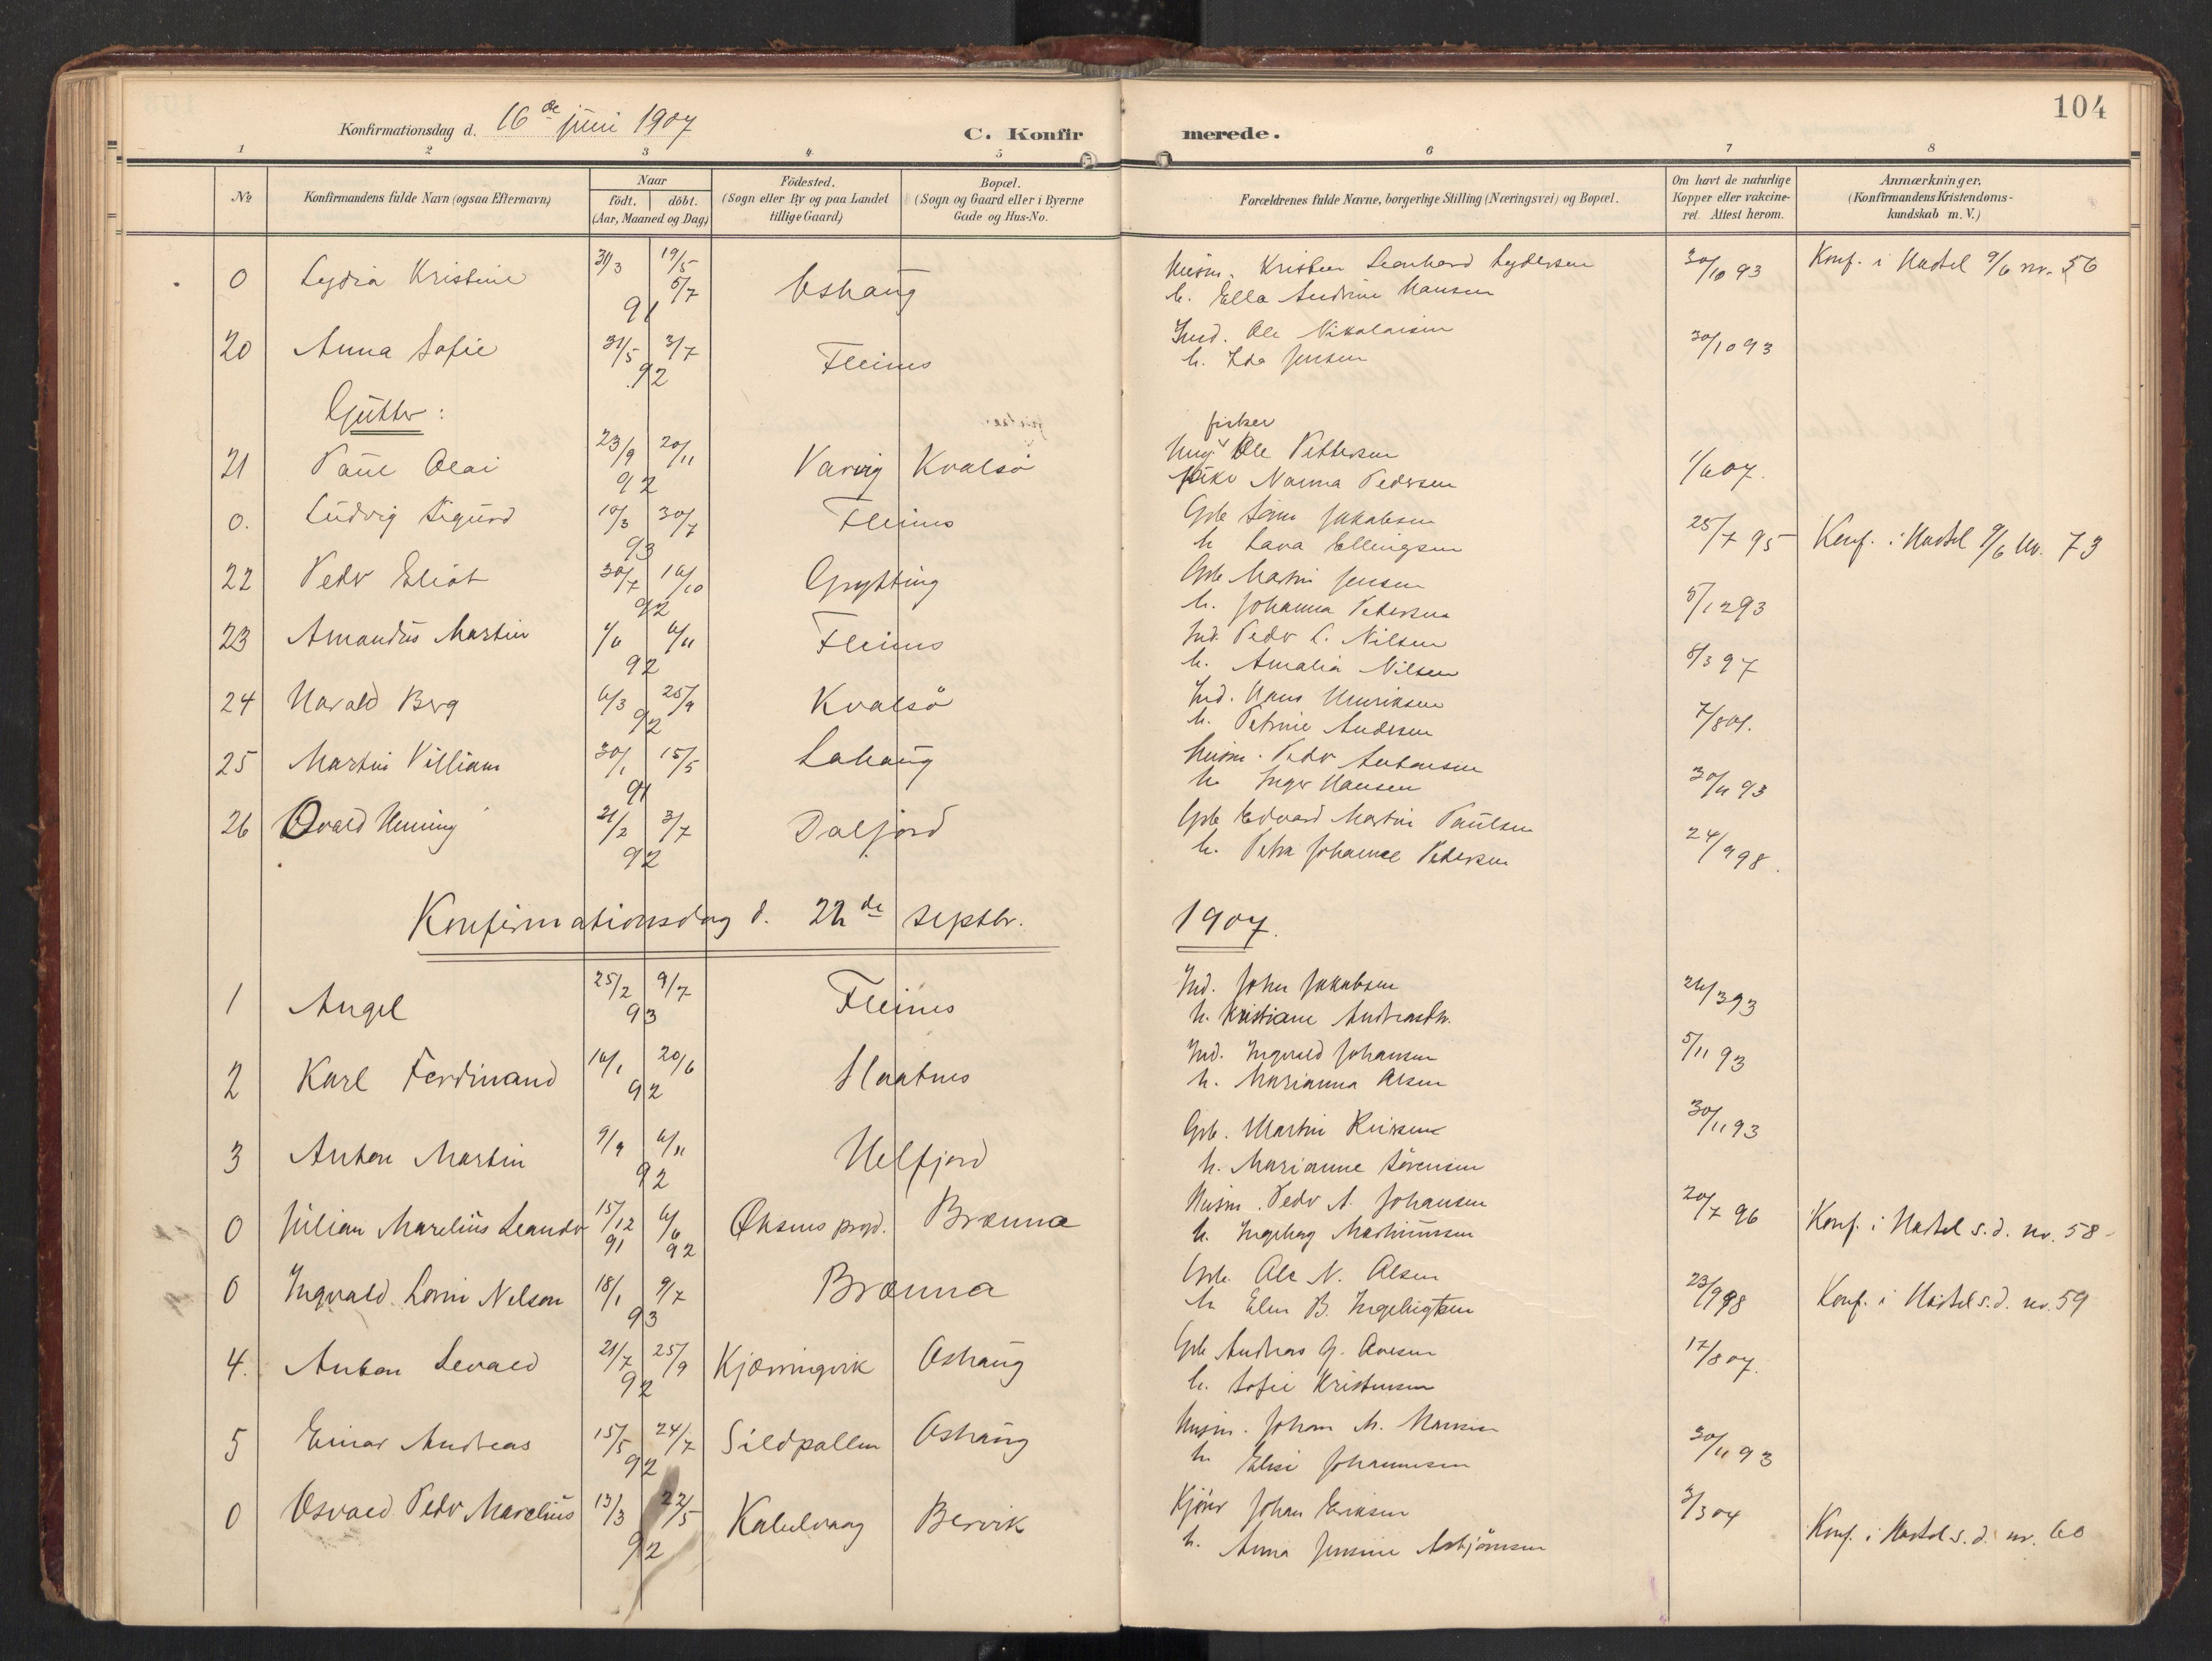 104
Konfirmationsdag d. 16de juni 1907
C. Konfirmerede.
1 2 3 4 5 6 7 8
No
Konfirmandens fulde Navn (ogsaa Efternavn)
Naar
født. døbt.
(Aar, Maaned og Dag)
Fødested.
(Sogn eller By og paa Landet
tillige Gaard)
Bopæl.
(Sogn og Gaard eller i Byerne
Gade og Hus-No.
Forældrenes fulde Navne, borgerlige Stilling (Næringsvei) og Bopæl.
Om havt de naturlige
Kopper eller vakcine-
ret. Attest herom.
Anmærkninger.
(Konfirmandens Kristendoms-
kundskab m. V.)
0 Lydia Kristine 31/3 19/5 5/7 91 Oshaug Husm. Kristen Leonhard Lydersen 30/10 93 Konf. i Hadsel 9/6 nr. 56
h. Ella Andrine Hansen
20 Anna Sofie 31/5 3/7 92 Fleines Ind. Ole Nikolaisen 30/10 93
h. Ida Jensen
Gutter:
fisker
21 Paul Olai 23/9 20/11 92 Varvig Kvalsø Ung. Ole Pettersen 1/6 07.
Pike Nanna Pedersen
0. Ludvig Sigurd 10/3 30/7 93 Fleines Gbr Sören Jakobsen 25/7 95 Konf. i Hadsel 9/6 Nr. 73
h Lava Ellingsen
22 Peder Eliot 30/7 16/10 92 Grytting Gbr Martin Jensen 5/12 93
h. Johanna Petersen
23 Amandus Martin 1/6 6/11 92 Fleines Ind. Peder C. Nilsen 8/3 97
h. Amalia Nilsen
24 Harald Berg 6/3 25/9 92 Kvalsø Ind. Hans Henriksen 7/8 01.
h. Petrine Andersen
25 Martin Villiam 30/1 15/5 91 Lahaug Husm. Peder Antonsen 30/11 93
h. Inger Hansen
26 Osvald Henning 21/2 3/7 92 Dalfjord Gbr Edvard Martin Paulsen 24/9 98.
h. Petra Johanne Petersen
Konfirmationsdag d. 22de Septbr. 1907.
1 Angel 25/2 9/7 93 Fleines Ind. John Jakobsen 26/3 93
h. Kristiane Andreasdtr.
2 Karl Ferdinand 16/1 20/6 92 Haatnes Ind. Ingvald Johansen 5/11 93
h. Marianna Olsen
3 Anton Martin 9/9 6/11 92 Helfjord Gbr. Martin Reiersen 30/11 93
h. Marianne Sörensen
0 Julian Marelius Leander 15/12 91 6/6 92 Øksnes prgd. Brænna Husm. Peder A. Johansen 20/7 96 Konf. i Hadsel s. d. nr. 58 -
h. Ingeborg Mathiassen
0 Ingvald Lorni Nelson 18/1 9/7 93 Brænna Gbr. Ole N. Olsen 23/9 98 Konf. i Hadsel s. d. nr. 59
h Elen B. Ingebrigtsen
4. Anton Sevald 21/7 25/9 92 Kjørringvik Oshaug Gbr Andreas G. Avesen 17/8 07.
h. Sofie Kristensen
5 Einar Andreas 15/5 24/7 92 Sildpollen Oshaug Husm. Johan M. Hansen 30/11 93
h. Elise Johannesen
0 Osvald Peder Marelius 13/3 22/5 92 Kabelvaag Bervik Kjörer Johan Eriksen 3/3 04 Konf. i Hadsel s. d. nr. 60
h. Anna Jensine Asbjörnsen